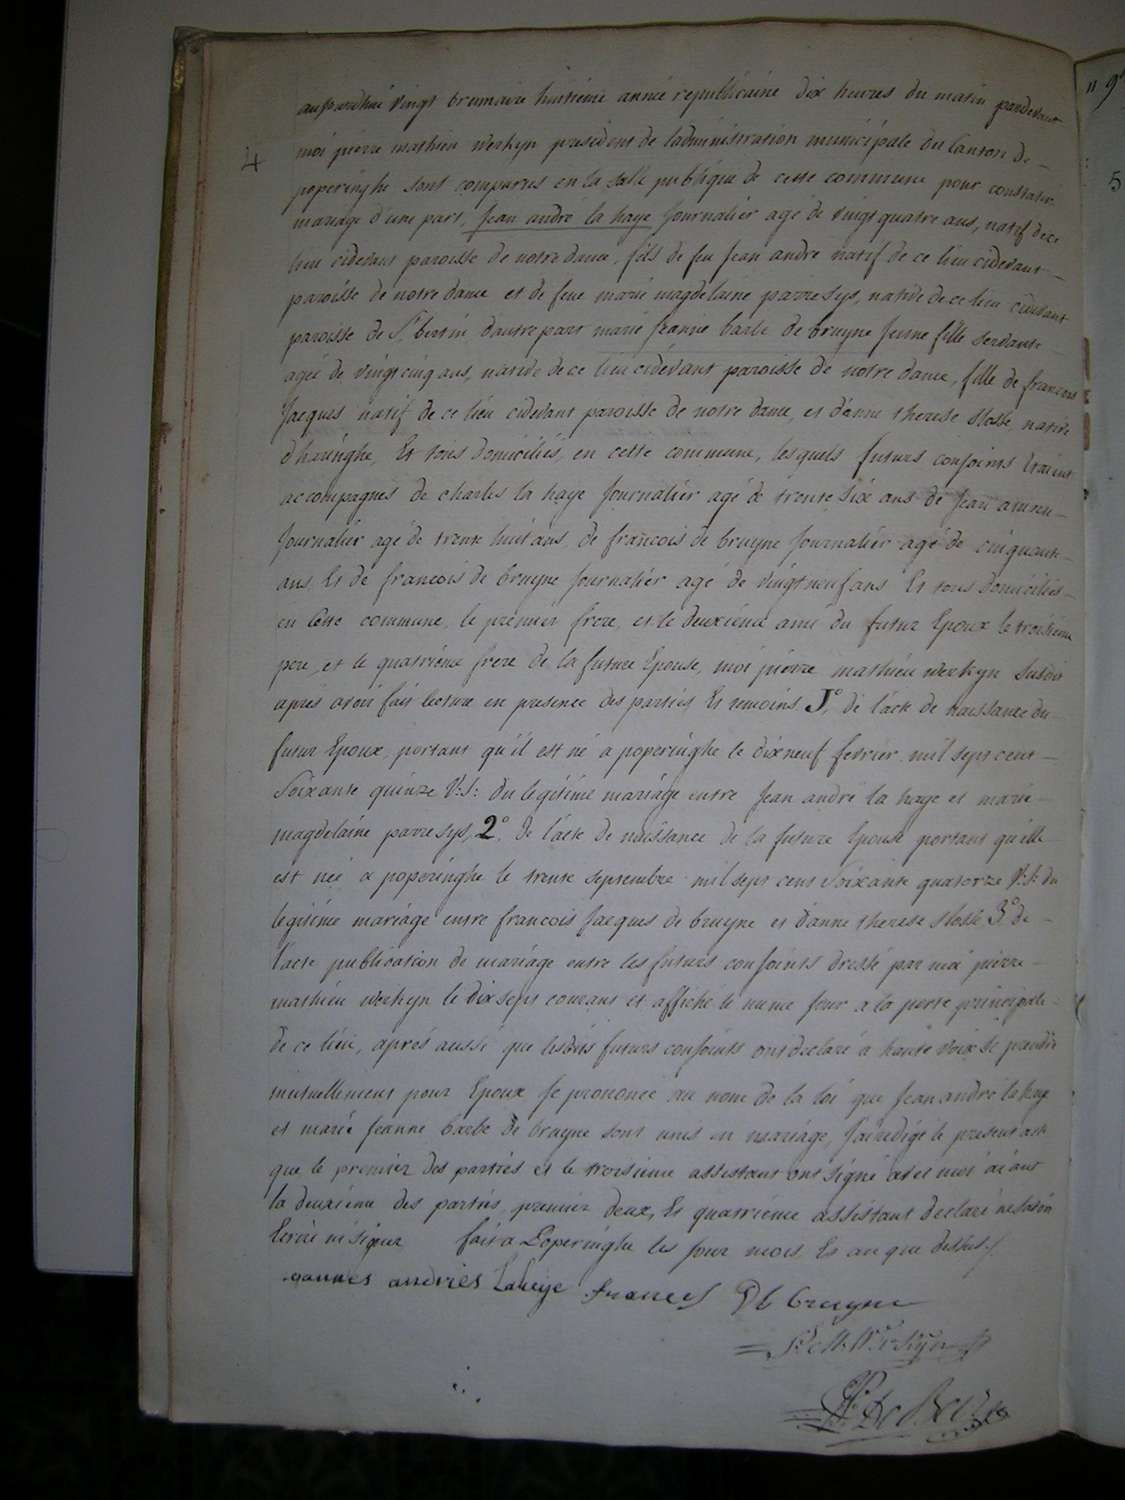 aujourdhui vingt brumaire huitieme année republicaine dix heures du matin pardevant
moi pierre mathieu werkyn president de ladministration municipale du Canton de
4
poperinghe sont comparus en la salle publique de cette commune pour constater
mariage d'une part, Jean andré la haye Journalier agé de vingt quatre ans, natif de ce
lieu cidevant paroisse de notre dame, fils de feu Jean andré natif de ce lieu cidevant
paroisse de notre dame et de feue marie magdelaine parresys, native de ce lieu cidevant
paroisse de St bertin, dautre part marie Jeanne barbe de bruyne Jeune fille servante
agée de vingt cinq ans, native de ce lieu cidevant paroisse de notre dame, fille de francois
Jacques natif de ce lieu cidevant paroisse de notre dame, et d'anne therese Hosle, native
d'haringhe, Et tous domiciliés, en cette commune, lesquels futurs conjoints etaient
accompagnés de charles la haye Journalier agé de trente six ans de Jean
Journalier agé de trente huit ans, de francois de bruyne Journalier agé de cinquante
ans, Et de francois de bruyne Journalier agé de vingt neuf ans Et tous domiciliés
en Cette commune, le premier frere, et le deuxieme ami du futur Epoux le troisieme
pere, et le quatrième frere de la future Epouse, moi pierre mathieu werkyn susdit
apres avoir fait lecture en presence des parties Et temoins 1° de l'acte de naissance du
futur Epoux, portant qu'il est né a poperinghe le dix neuf fevrier mil sept cent
Soixante quinze V:S: du legitime mariage entre Jean andré la haye et marie
magdelaine parresys, 2° de l'acte de naissance de la future Epouse portant qu'elle
est née a poperinghe le trente septembre mil sept cent Soixante quatorze V:S: du
legitime mariage entre francois Jacques de bruyne et d'anne therese Hosle 3° de
l'acte publication de mariage entre les futurs conjoints dressé par moi pierre
mathieu werkyn le dix sept courant et affiché le meme Jour a la porte principale
de ce lieu, après aussi que lesdits futurs conjoints ont declaré a haute voix se prendre
mutuellement pour Epoux Je prononce au nom de la loi que Jean andré la haye
et marie Jeanne barbe de bruyne sont unis en mariage, J'ai redigé le present acte
que le premier des parties et le troisieme assistant ont signé avec moi aiant
la deuxieme des parties, premier deux, Et quatrieme assistant declaré ne savoir
Ecrire ni signer fait a Poperinghe les Jour mois Et an que dessus
Joannes andries Laheije frances De bruyne
P: M: Werkyn